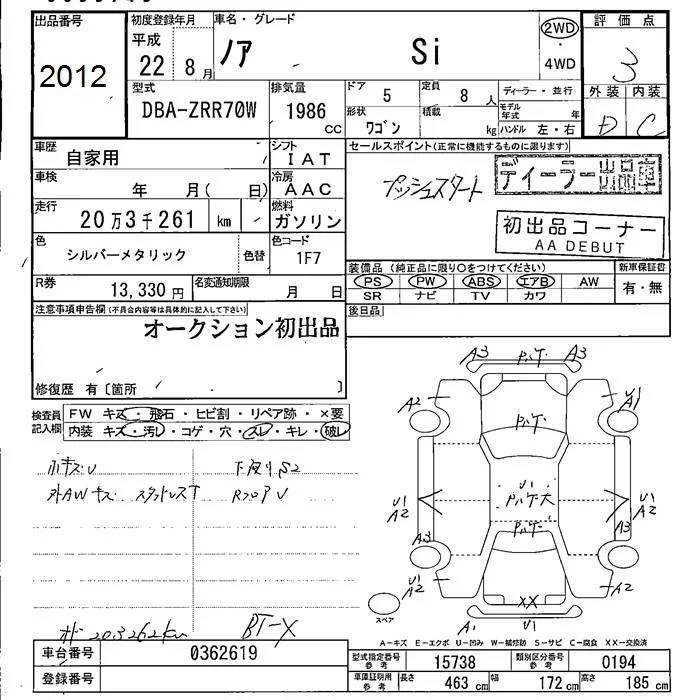 出品番号
2012
初度登録年月
平成
22 8月
車名・グレード
ノア Si
2WD
・
4WD
評価点
3
外装 内装
D C
型式
DBA-ZRR70W
排気量
1986
cc
ドア
5
定員
8人
形状
ワゴン
積載
kg
ディーラー・並行
モデル年式 年
ハンドル 左・右
車歴
自家用
シフト
IAT
車検
年 月( 日)
冷房
AAC
走行
20万3千261 km
燃料
ガソリン
色
シルバーメタリック
色替
色コード
1F7
R券
13,330円
名変通知期限
月 日
セールスポイント(正常に機能するものに限ります)
プッシュスタート
ディーラー出品車
初出品コーナー
AA DEBUT
装備品(純正品に限り○をつけてください)
PS PW ABS エアB AW
SR ナビ TV カワ
新車保証書
有・無
後日品
注意事項申告欄(不具合内容等は具体的に記入して下さい)
オークション初出品
修復歴 有〔箇所 〕
検査員記入欄
FW キズ・飛石・ヒビ割・リペア跡・×要
内装 キズ・汚レ・コゲ・穴・スレ・キレ・破レ
小キズU
下廻りS2
外AWキズ スタットレスT
203262km
BT-X
A3 A3
A2 U1
A1
U1
A2
U1
A2
A3 A3
U1
A2 A2
XX
A1 U1
スペア
A-キズ E-エクボ U-凹み W-補修跡 S-サビ C-腐食 XX-交換済
車台番号
0362619
登録番号
型式指定番号
参考
15738
類別区分番号
参考
0194
車庫証明用
参考
長さ 463cm 幅 172cm 高さ 185cm